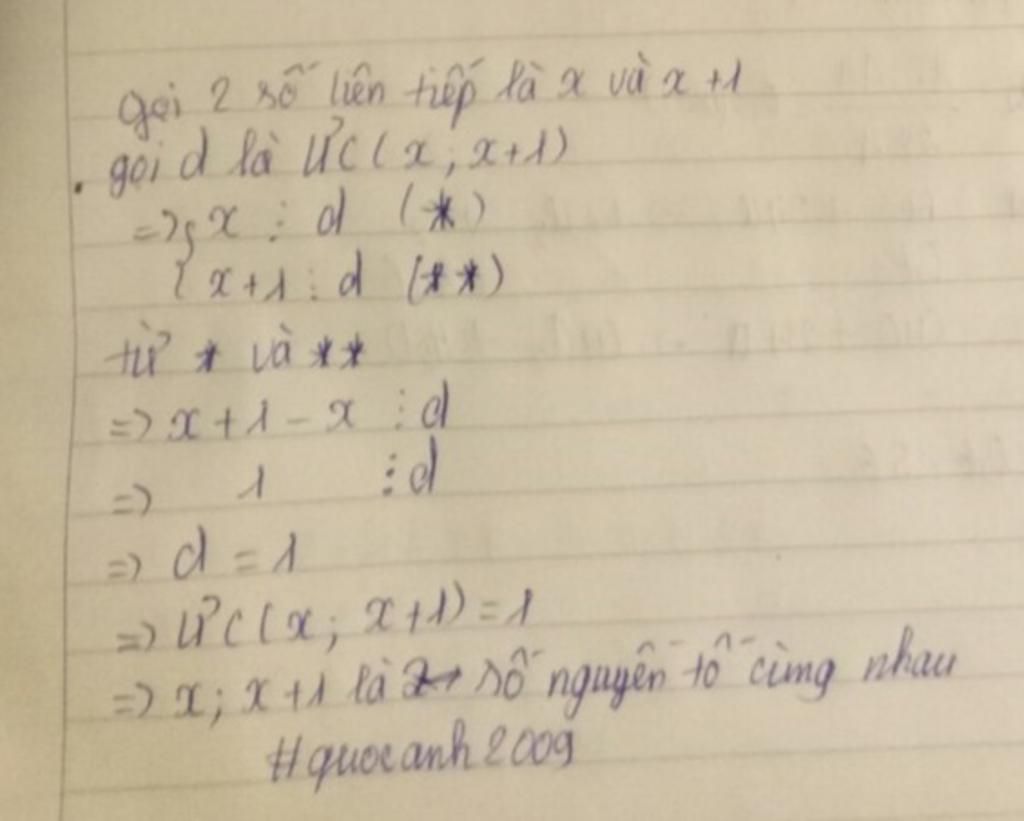 gọi 2 số liên tiếp là x và x+1
. gọi d là ƯC(x; x+1)
=> { x ⋮ d (*)
{ x+1 ⋮ d (**)
từ * và **
=> x+1-x ⋮ d
=> 1 ⋮ d
=> d = 1
=> ƯC(x; x+1)=1
=> x; x+1 là số nguyên tố cùng nhau
#quocanh2009